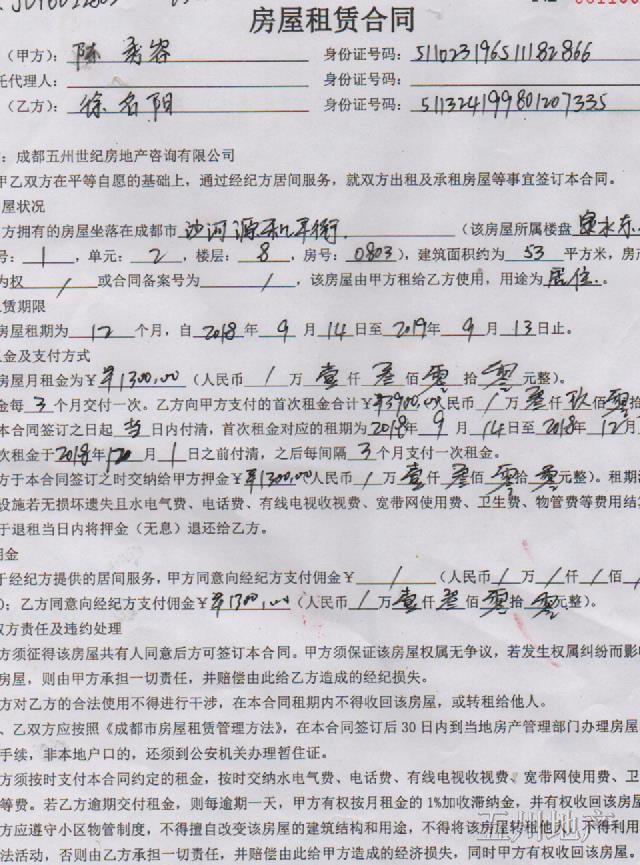 房屋租赁合同
（甲方）：陈秀容 身份证号码：511023196511182866
托代理人： 身份证号码：
（乙方）：徐名阳 身份证号码：511324199801207335
：成都五州世纪房地产咨询有限公司
甲乙双方在平等自愿的基础上，通过经纪方居间服务，就双方出租及承租房屋等事宜签订本合同。
屋状况
方拥有的房屋坐落在成都市沙河源 （该房屋所属楼盘
号：1，单元：2，楼层：8，房号：0803），建筑面积约为53平方米，房产
为权 / 或合同备案号为 / ，该房屋由甲方租给乙方使用，用途为居住。
赁期限
房屋租期为12个月，自2018年9月14日至2019年9月13日止。
金及支付方式
房屋月租金为￥￥1300.00（人民币/万壹仟叁佰零拾零元整）。
金每3个月交付一次。乙方向甲方支付的首次租金合计￥￥3900.00人民币/万叁仟玖佰零拾
本合同签订之日起当日内付清，首次租金对应的租期为2018年9月14日至2018年12月
次租金于2018年12月1日之前付清，之后每间隔3个月支付一次租金。
方于本合同签订之时交纳给甲方押金￥1300.00人民币/万壹仟叁佰零拾零元整）。租期
设施若无损坏遗失且水电气费、电话费、有线电视收视费、宽带网使用费、卫生费、物管费等费用结
于退租当日内将押金（无息）退还给乙方。
佣金
于经纪方提供的居间服务，甲方同意向经纪方支付佣金￥ / （人民币/万/仟/佰
）；乙方同意向经纪方支付佣金￥￥1300.00（人民币/万壹仟叁佰零拾零元整）。
双方责任及违约处理
方须征得该房屋共有人同意后方可签订本合同。甲方须保证该房屋权属无争议，若发生权属纠纷而影响
房屋，则由甲方承担一切责任，并赔偿由此给乙方造成的经纪损失。
方对乙方的合法使用不得进行干涉，在本合同租期内不得收回该房屋，或转租给他人。
、乙双方应按照《成都市房屋租赁管理方法》，在本合同签订后30日内到当地房产管理部门办理房屋
手续，非本地户口的，还须到公安机关办理暂住证。
方须按时支付本合同约定的租金，按时交纳水电气费、电话费、有线电视收视费、宽带网使用费、卫
等费。若乙方逾期交付租金，则每逾期一天，甲方有权按月租金的1%加收滞纳金，并有权收回该房屋
方应遵守小区物管制度，不得擅自改变该房屋的建筑结构和用途，不得将该房屋转租他人，不得利用
法活动，否则由乙方承担一切责任，并赔偿由此给甲方造成的经济损失，同时甲方有权收回该房屋，
五州地产